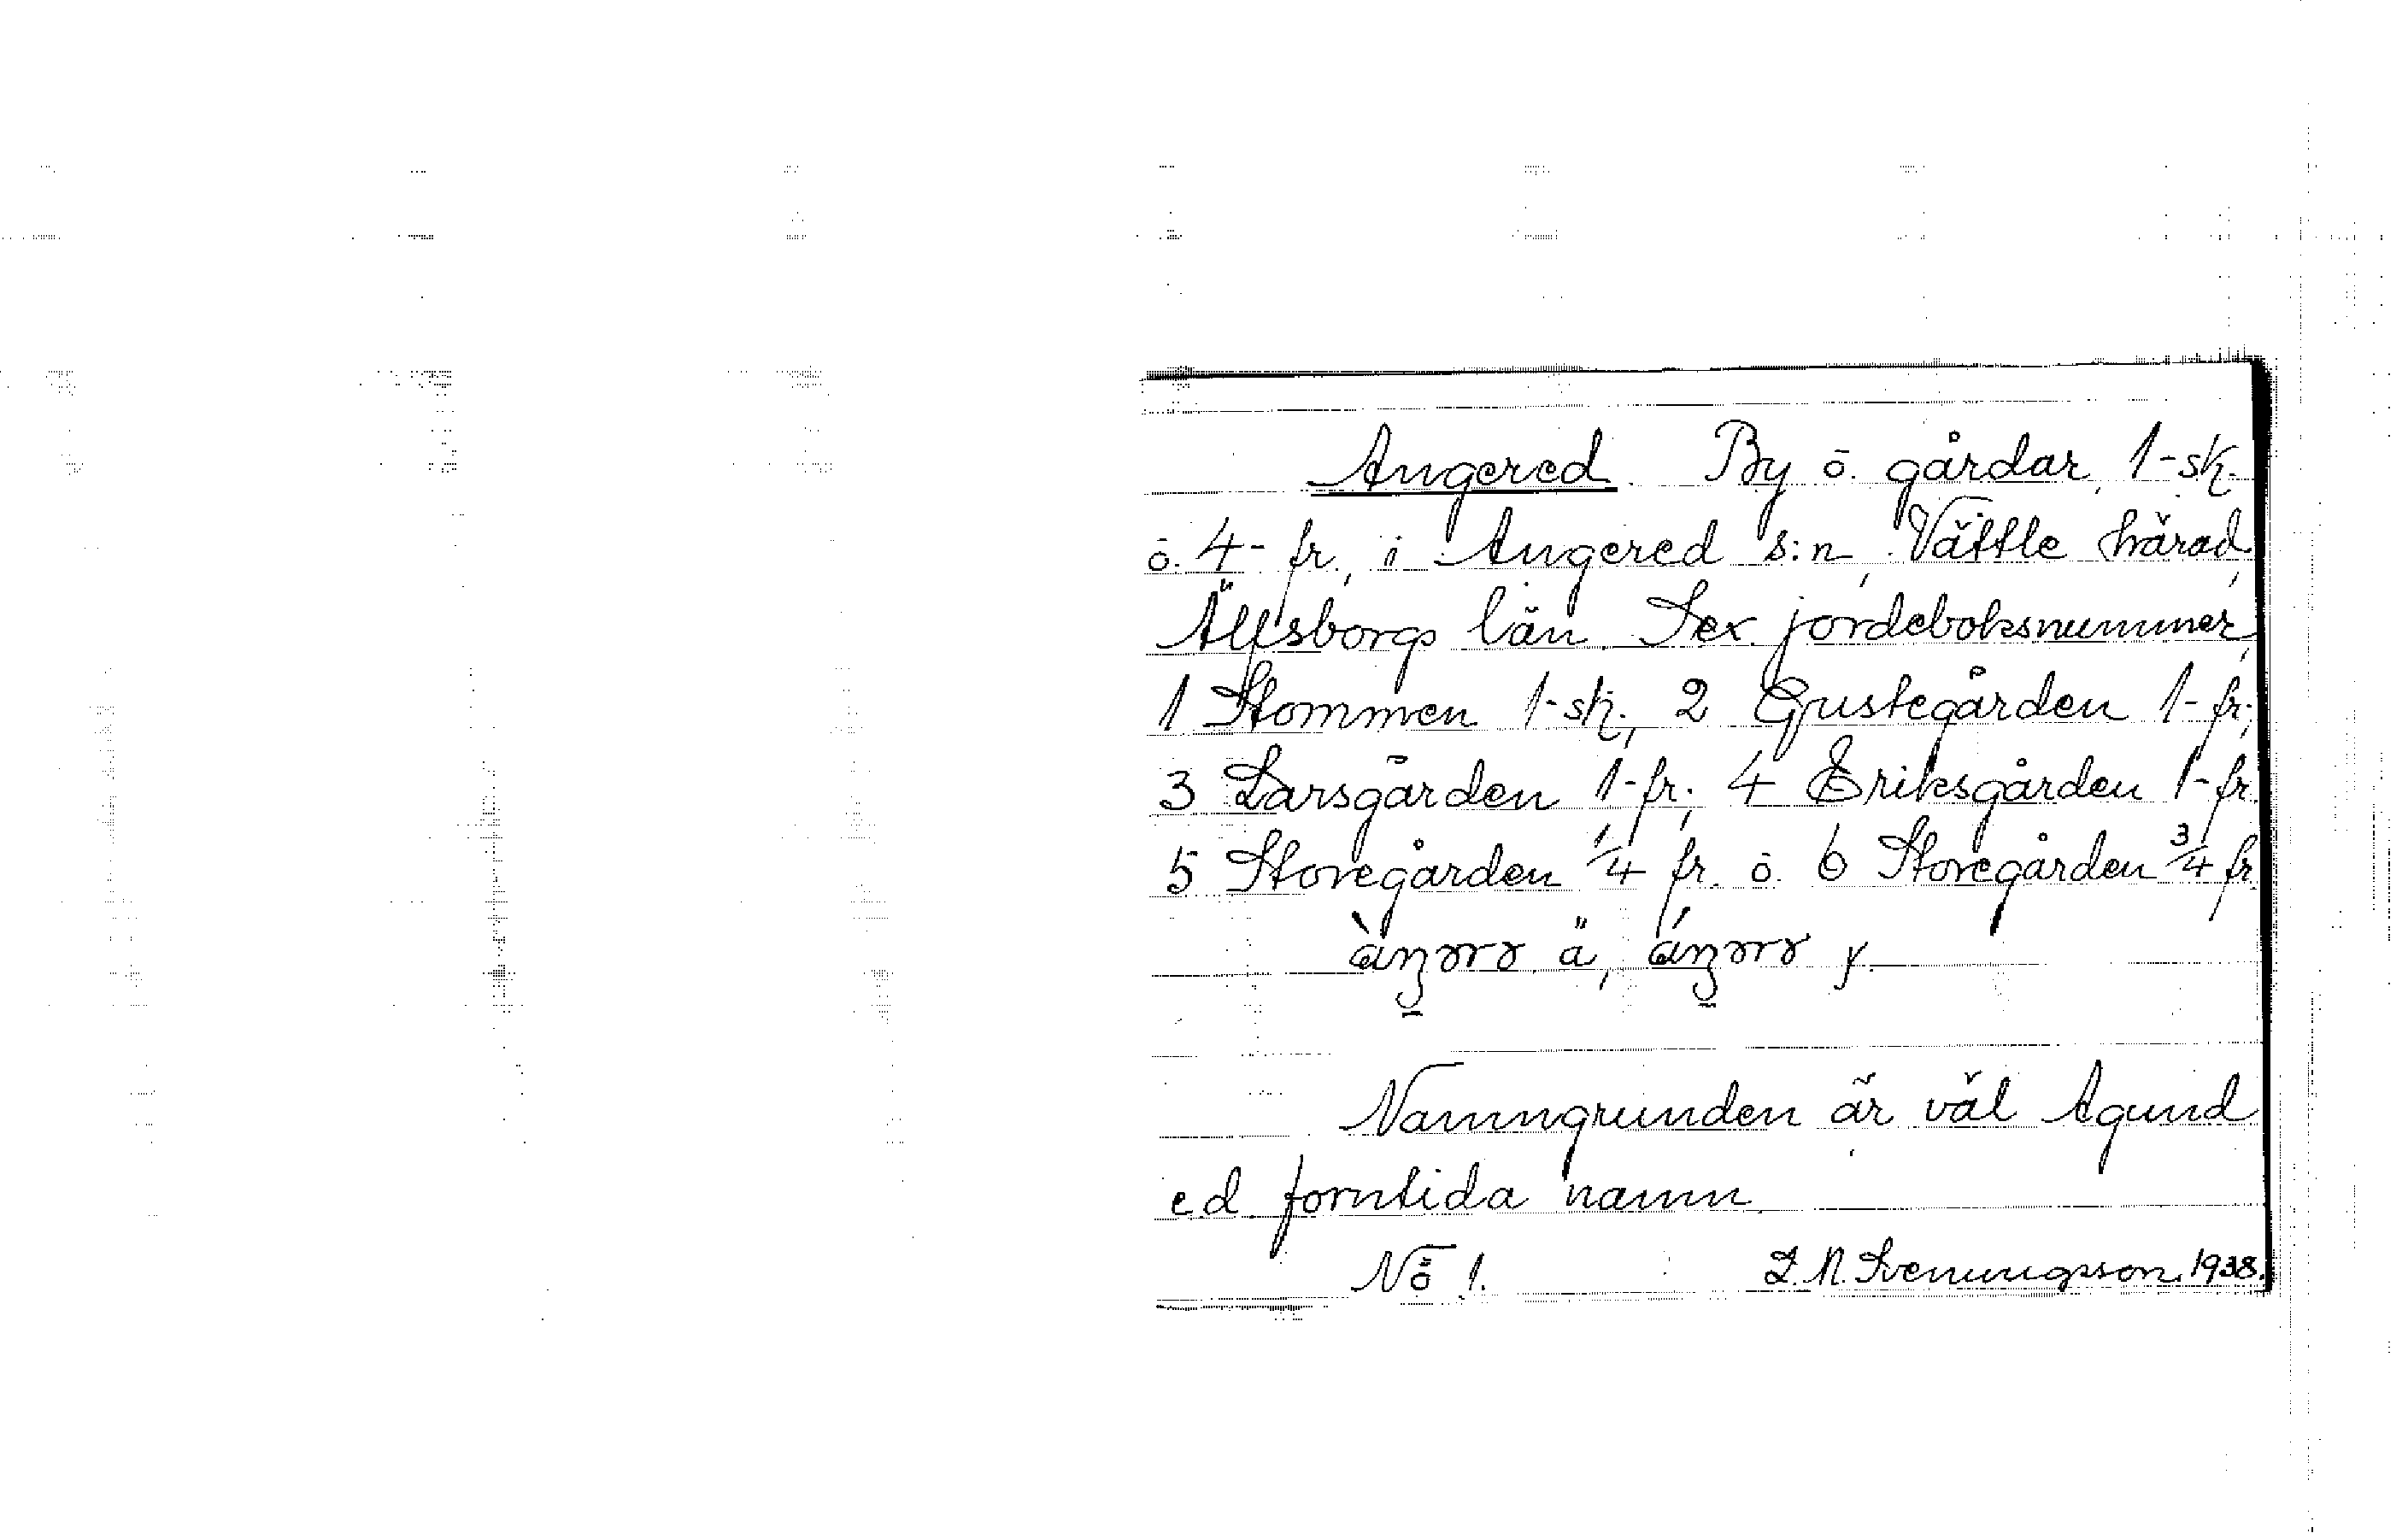 Angered. By o. gårdar, 1-sk.
o. 4-fr., i Angered s:n, Vättle härad,
Älfsborgs län. Sex jordeboksnummer,
1 Stommen 1-sk., 2 Gustegården 1-fr.,
3 Larsgården 1-fr., 4 Eriksgården 1-fr.
5 Storegården 1/4 fr. o. 6 Storegården 3/4 fr.
ä, y.
Namngrunden är väl Agund
ed forntida namn.
No 1. Svenungsson. 1938.